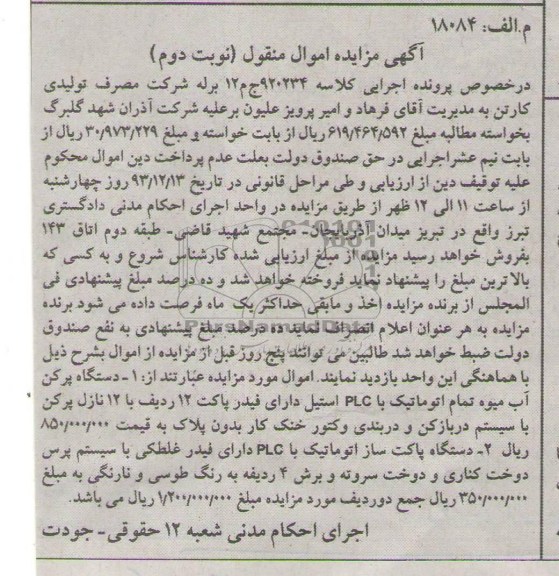 م.الف: ۱۸۰۸۴
آگهی مزایده اموال منقول (نوبت دوم)
درخصوص پرونده اجرایی کلاسه ۹۲۰۲۳۴ج م۱۲ برله شرکت مصرف تولیدی
کارتن به مدیریت آقای فرهاد و امیر پرویز علیون برعلیه شرکت آذران شهد گلبرگ
بخواسته مطالبه مبلغ ۶۱۹/۴۶۴/۵۹۲ ریال از بابت خواسته و مبلغ ۳۰/۹۷۳/۲۲۹ ریال از
بابت نیم عشراجرایی در حق صندوق دولت بعلت عدم پرداخت دین اموال محکوم
علیه توقیف دین از ارزیابی و طی مراحل قانونی در تاریخ ۹۳/۱۲/۱۳ روز چهارشنبه
از ساعت ۱۱ الی ۱۲ ظهر از طریق مزایده در واحد اجرای احکام مدنی دادگستری
تبرز واقع در تبریز میدان آذربایجان- مجتمع شهید قاضی- طبقه دوم اتاق ۱۴۳
بفروش خواهد رسید مزایده از مبلغ ارزیابی شده کارشناس شروع و به کسی که
بالاترین مبلغ را پیشنهاد نماید فروخته خواهد شد و ده درصد مبلغ پیشنهادی فی
المجلس از برنده مزایده اخذ و مابقی حداکثر یک ماه فرصت داده می شود برنده
مزایده به هر عنوان اعلام انصراف نماید ده درصد مبلغ پیشنهادی به نفع صندوق
دولت ضبط خواهد شد طالبین می توانند پنج روز قبل از مزایده از اموال بشرح ذیل
با هماهنگی این واحد بازدید نمایند. اموال مورد مزایده عبارتند از: ۱- دستگاه پرکن
آب میوه تمام اتوماتیک با PLC استیل دارای فیدر پاکت ۱۲ ردیف با ۱۲ نازل پرکن
با سیستم دربازکن و دربندی وکتور خنک کار بدون پلاک به قیمت ۸۵۰/۰۰۰/۰۰۰
ریال ۲- دستگاه پاکت ساز اتوماتیک با PLC دارای فیدر غلطکی با سیستم پرس
دوخت کناری و دوخت سروته و برش ۴ ردیفه به رنگ طوسی و نارنگی به مبلغ
۳۵۰/۰۰۰/۰۰۰ ریال جمع دوردیف مورد مزایده مبلغ ۱/۲۰۰/۰۰۰/۰۰۰ ریال می باشد.
اجرای احکام مدنی شعبه ۱۲ حقوقی- جودت